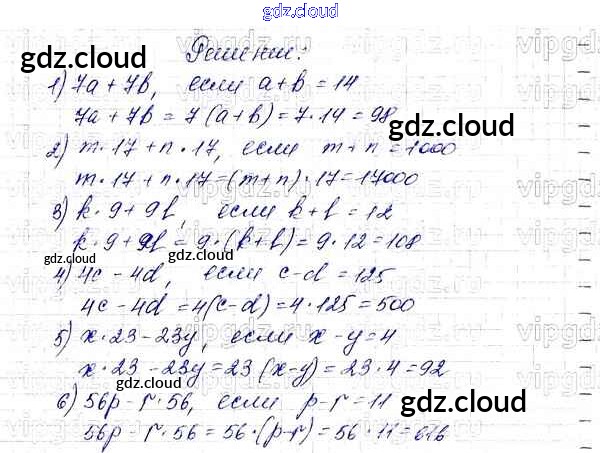 gdz.cloud
Решение:
gdz.cloud
1) 7a + 7b, если a + b = 14
7a + 7b = 7(a + b) = 7 · 14 = 98
gdz.cloud
2) m · 17 + n · 17, если m + n = 1000
m · 17 + n · 17 = (m + n) · 17 = 17000
3) k · 9 + 9b, если k + b = 12
k · 9 + 9b = 9 · (k + b) = 9 · 12 = 108
gdz.cloud gdz.cloud
4) 4c - 4d, если c - d = 125
4c - 4d = 4(c - d) = 4 · 125 = 500
gdz.cloud
5) x · 23 - 23y, если x - y = 4
x · 23 - 23y = 23(x - y) = 23 · 4 = 92
gdz.cloud
6) 56p - r · 56, если p - r = 11
gdz.cloud
56p - r · 56 = 56 · (p - r) = 56 · 11 = 616